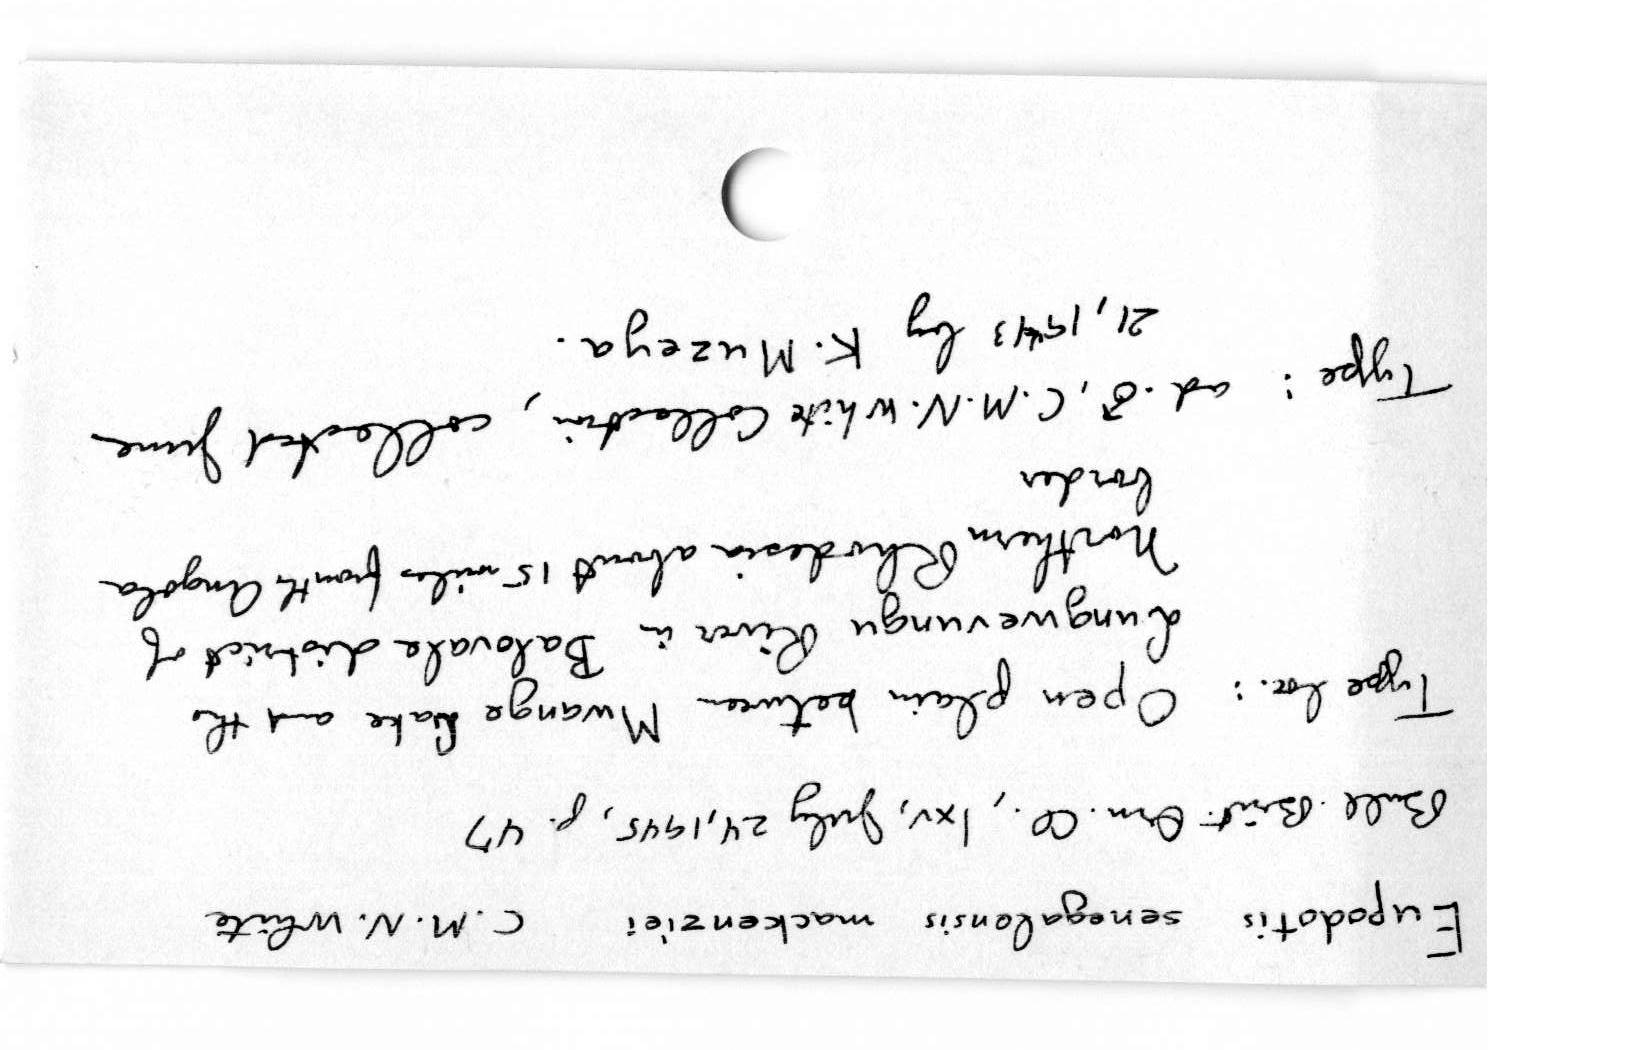 Eupodotis senegalensis mackenziei C.M.N. White
Bull. Brit. Orn. Cl., lxv, July 24, 1945, p. 47
Type loc.: Open plain between Mwange Lake and the
Lungwevungu River in Balovale district of
Northern Rhodesia about 15 miles from the Angola
border
Type: ad. ♂, C.M.N. White Collection, collected June
21, 1943 by K. Muzeya.